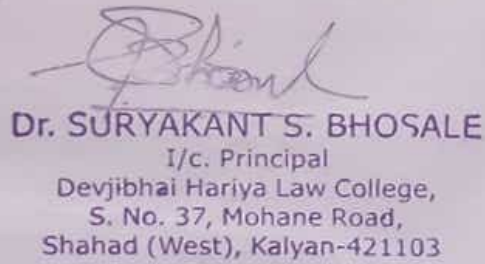 Bhosale
Dr. SURYAKANT S. BHOSALE
I/c. Principal
Devjibhai Hariya Law College,
S. No. 37, Mohane Road,
Shahad (West), Kalyan-421103